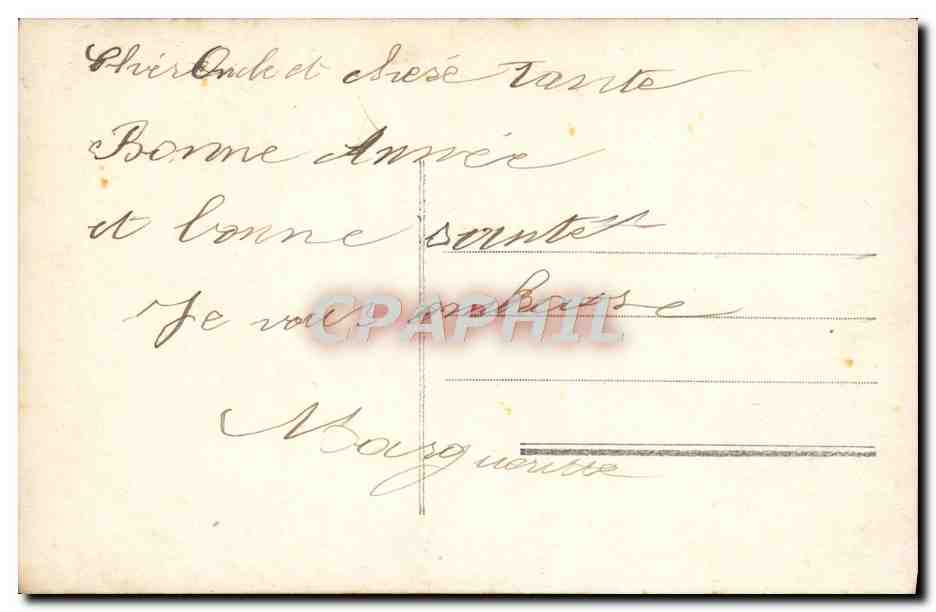 Cher Oncle et chère Tante
Bonne Année
et bonne santé
Je vous embrasse
CPAPHIL